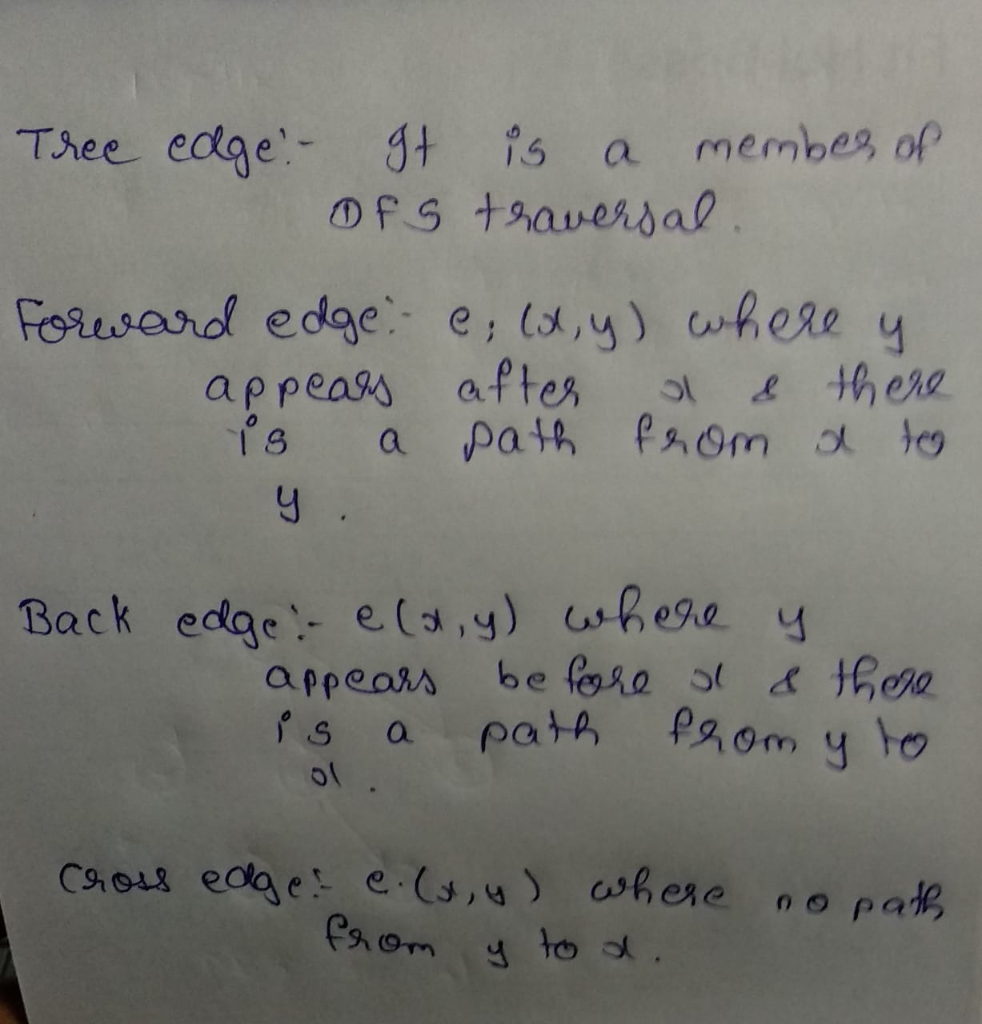 Tree edge:- It is a member of
DFS traversal.
Forward edge:- e; (x,y) where y
appears after x & there
is a path from x to
y.
Back edge:- e(x,y) where y
appears before x & there
is a path from y to
x.
Cross edge:- e.(x,y) where no path
from y to x.